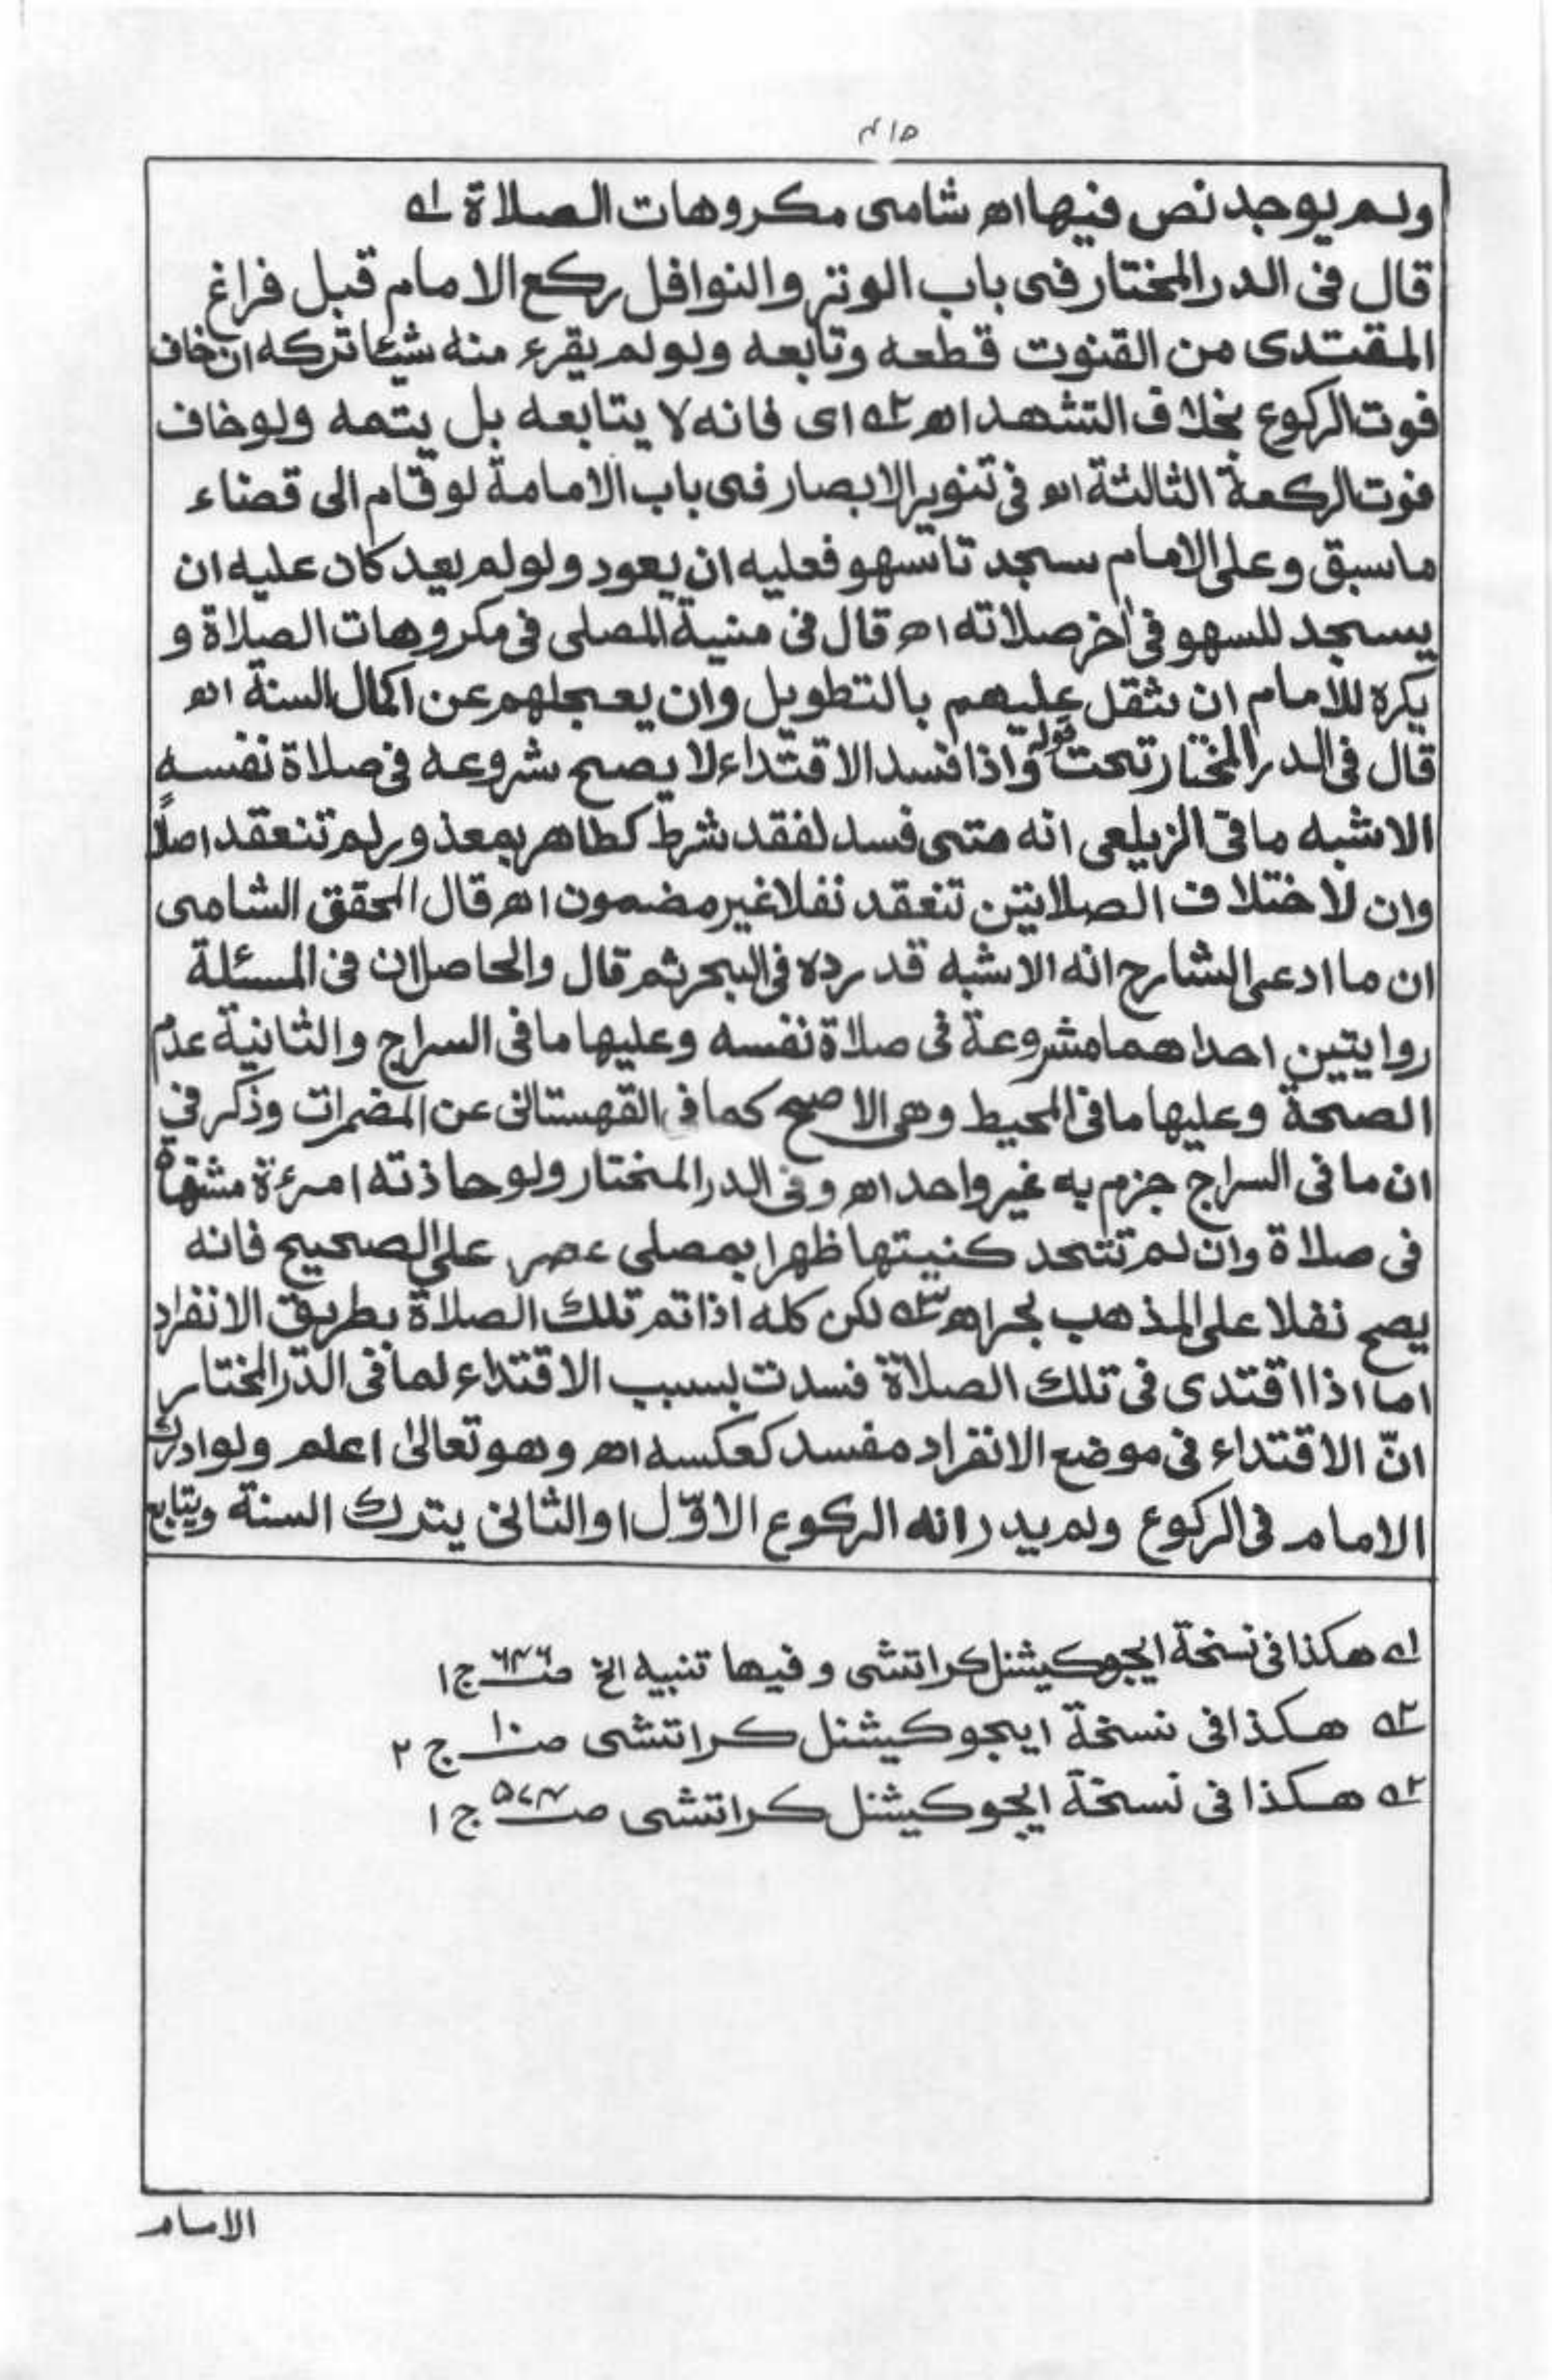 ٤١٥
ولم يوجد نص فيها اھ شامى مكروهات الصلاة ١ه
قال فى الدر المختار فى باب الوتر والنوافل ركع الامام قبل فراغ
المقتدى من القنوت قطعه وتابعه ولو لم يقرء منه شيئا تركه ان خاف
فوت الركوع بخلاف التشهد اھ ٢ه اى فانه لا يتابعه بل يتمه ولو خاف
فوت الركعة الثالثة اھ فى تنوير الابصار فى باب الامامة لو قام الى قضاء
ما سبق وعلى الامام سجدتا سهو فعليه ان يعود ولو لم يعد كان عليه ان
يسجد للسهو فى اٰخر صلاته اھ قال فى منية المصلى فى مكروهات الصلاة و
يكره للأمام ان يثقل عليهم بالتطويل وان يعجلهم عن اكمال السنة اھ
قال فى الدر المختار تحت قوله واذا فسد الاقتداء لا يصح شروعه فى صلاة نفسه
الاشبه ما فى الزيلعى انه متى فسد لفقد شرط كطاهر بمعذور لم تنعقد اصلاً
وان لاختلاف الصلاتين تنعقد نفلا غير مضمون اھ قال المحقق الشامى
ان ما ادعى الشارح انه الاشبه قد رده فى البحر ثم قال والحاصل ان فى المسئلة
روايتين احداهما مشروعة فى صلاة نفسه وعليها ما فى السراج والثانية عدم
الصحة وعليها ما فى المحيط وهى الاصح كما فى القهستانى عن المضمرات وذكر فى
ان ما فى السراج جزم به غير واحد اھ وفى الدر المختار ولو حاذته امرءة مشتهاة
فى صلاة وان لم تتحد كنيتها ظهرا بمصلى عصر على الصحيح فانه
يصح نفلا على المذهب بحر اھ ٣ه لكن كله اذا تم تلك الصلاة بطريق الانفراد
اما اذا اقتدى فى تلك الصلاة فسدت بسبب الاقتداء لما فى الدر المختار
انّ الاقتداء فى موضع الانفراد مفسد كعكسه اھ وهو تعالىٰ اعلم ولو ادرك
الامام فى الركوع ولم يدر انه الركوع الاوّل او الثانى يترك السنة ويتابع
١ه هكذا فى نسخة ايجوكيشنل كراتشى وفيها تنبيه الخ صـ ٦٤٦ ج ١
٢ه هكذا فى نسخة ايجوكيشنل كراتشى صـ ١٠ ج ٢
٣ه هكذا فى نسخة ايجوكيشنل كراتشى صـ ٥٧٤ ج ١
الامام